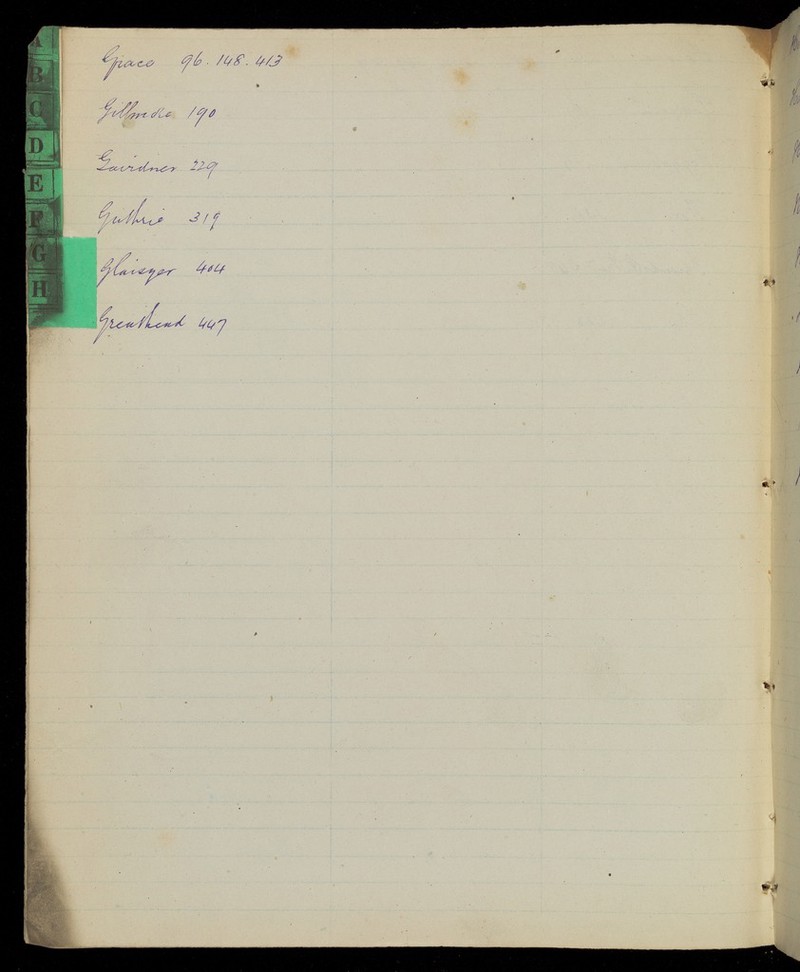 A
B
C
D
E
F
G
H
Grace 96. 148. 413
190
Gairdner 229
Guthrie 319
Glaisyer 404
Greathead 447